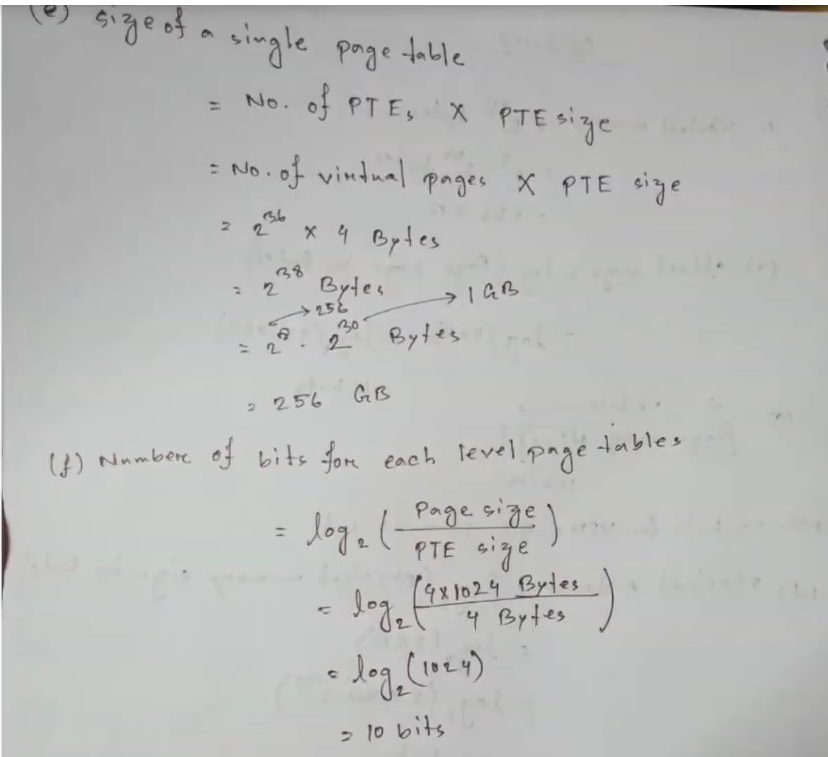 (e) size of a single page table
= No. of PTEs X PTE size
= No. of virtual pages X PTE size
= 2^36 x 4 Bytes
= 2^38 Bytes
→ 256 → 1 GB
= 2^8 . 2^30 Bytes
= 256 GB
(f) Number of bits for each level page tables
= log2 (Page size / PTE size)
= log2 (4x1024 Bytes / 4 Bytes)
= log2 (1024)
= 10 bits